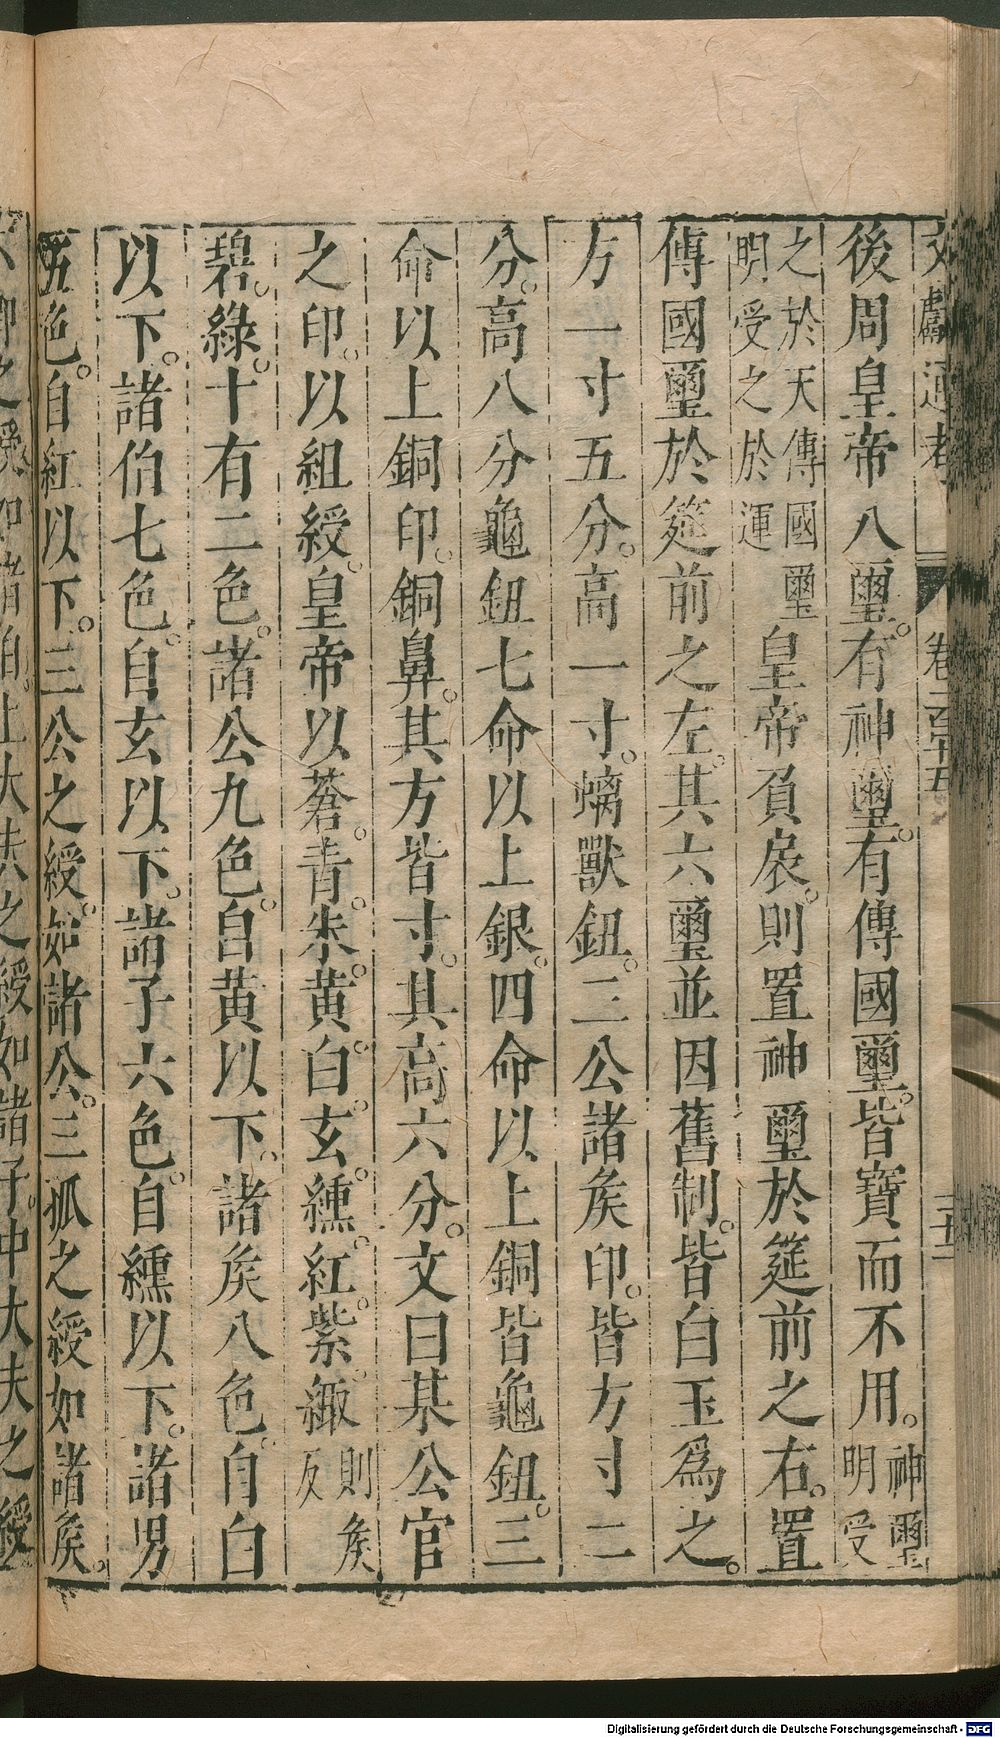 文獻通考 卷一百十五 二十五
後周皇帝八璽。有神璽。有傳國璽。皆寶而不用。神璽明受
之於天傳國璽明受之於運皇帝負扆。則置神璽於筵前之右。置
傳國璽於筵前之左。其六璽並因舊制。皆白玉爲之。
方一寸五分。高一寸。螭獸鈕。三公諸矦印。皆方寸二
分。高八分龜鈕七命以上銀。四命以上銅皆龜鈕。三
命以上銅印。銅鼻。其方皆寸。其高六分。文曰某公官
之印。以組綬。皇帝以蒼。青。朱。黃。白。玄。纁。紅。紫。緅則矦反
碧。綠。十有二色。諸公九色。自黃以下。諸矦八色。自白
以下。諸伯七色。自玄以下。諸子六色。自纁以下。諸男
五色。自紅以下。三公之綬。如諸公。三孤之綬如諸矦。
六卿之綬如諸伯。上大夫之綬如諸子。中大夫之綬
Digitalisierung gefördert durch die Deutsche Forschungsgemeinschaft - DFG